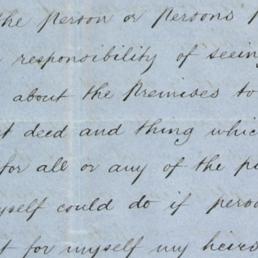 the Person or Persons
responsibility of seeing
about the Premises to
deed and thing which
for all or any of the
myself could do if
for myself my heirs